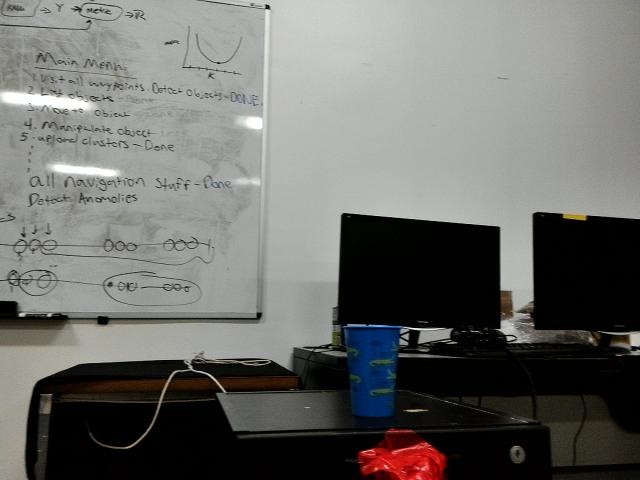 Y → Metric → R
Main Menu
1. Visit all waypoints. Detect Objects - DONE
2. List objects
3. Move to object
4. Manipulate object
5. upload clusters - Done
all navigation stuff - Done
Detect Anomalies
K